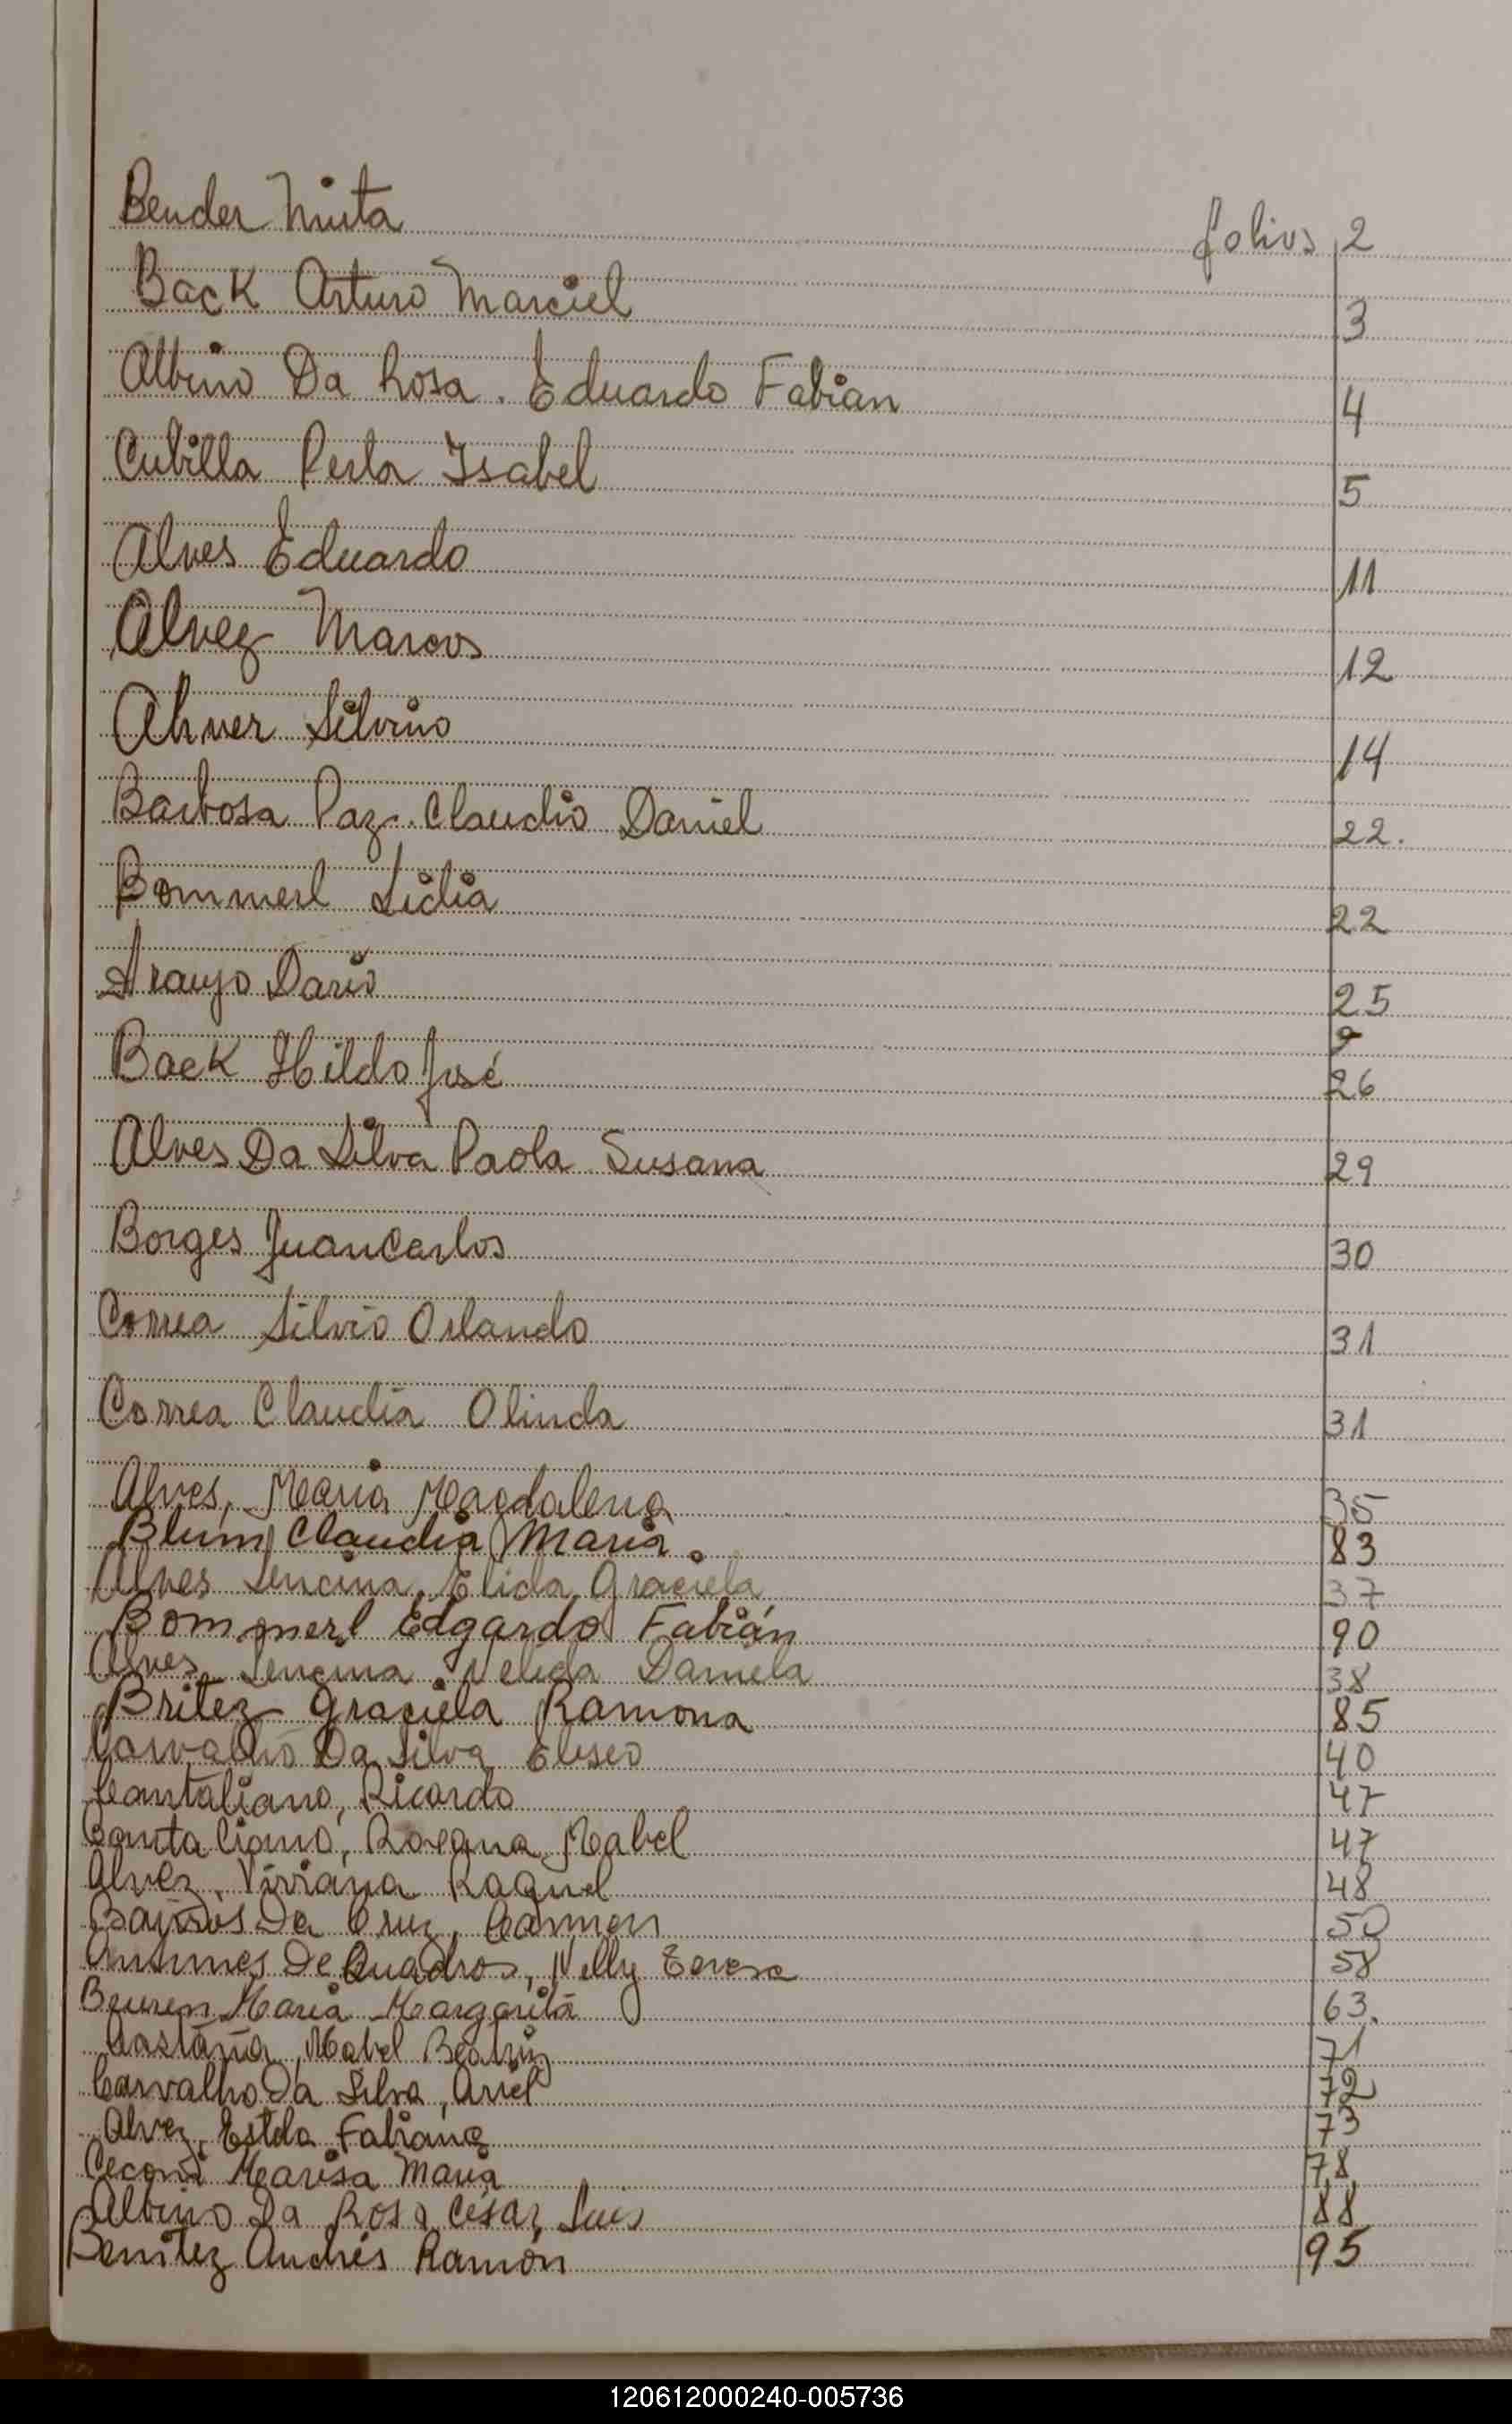 Bender Mirta folios 2
Back Arturo Marciel 3
Albino Da Rosa. Eduardo Fabian 4
Cubilla Perla Isabel 5
Alves Eduardo 11
Alvez Marcos 12
Ahner Silvino 14
Barbosa Paz. Claudio Daniel 22.
Bommerl Lidia 22
Araujo Dario 25
9
Back Hildo José 26
Alves Da Silva Paola Susana 29
Borges Juan Carlos 30
Correa Silvio Orlando 31
Correa Claudia Olinda 31
Alves, Maria Magdalena 35
Blum Claudia Maria. 83
Alves Lencina, Elida Graciela 37
Bommerl Edgardo Fabián 90
Alves Lencina Nelida Daniela 38
Britez Graciela Ramona 85
Carvalho Da Silva Eliseo 40
Cantaliano, Ricardo 47
Cantaliano, Roxana Mabel 47
Alvez, Viviana Raquel 48
Da Cruz, Carmen 50
Antunes De Quadros, Nelly Teresa 58
Beuren Maria Margarita 63.
Castaña, Mabel Beatriz 71
Carvalho Da Silva, Ariel 72
Alvez, Estela Fabiana 73
Ceconi Marisa Maria 78
Albino Da Rosa César Luis 88
Benitez Andrés Ramón 95
120612000240-005736